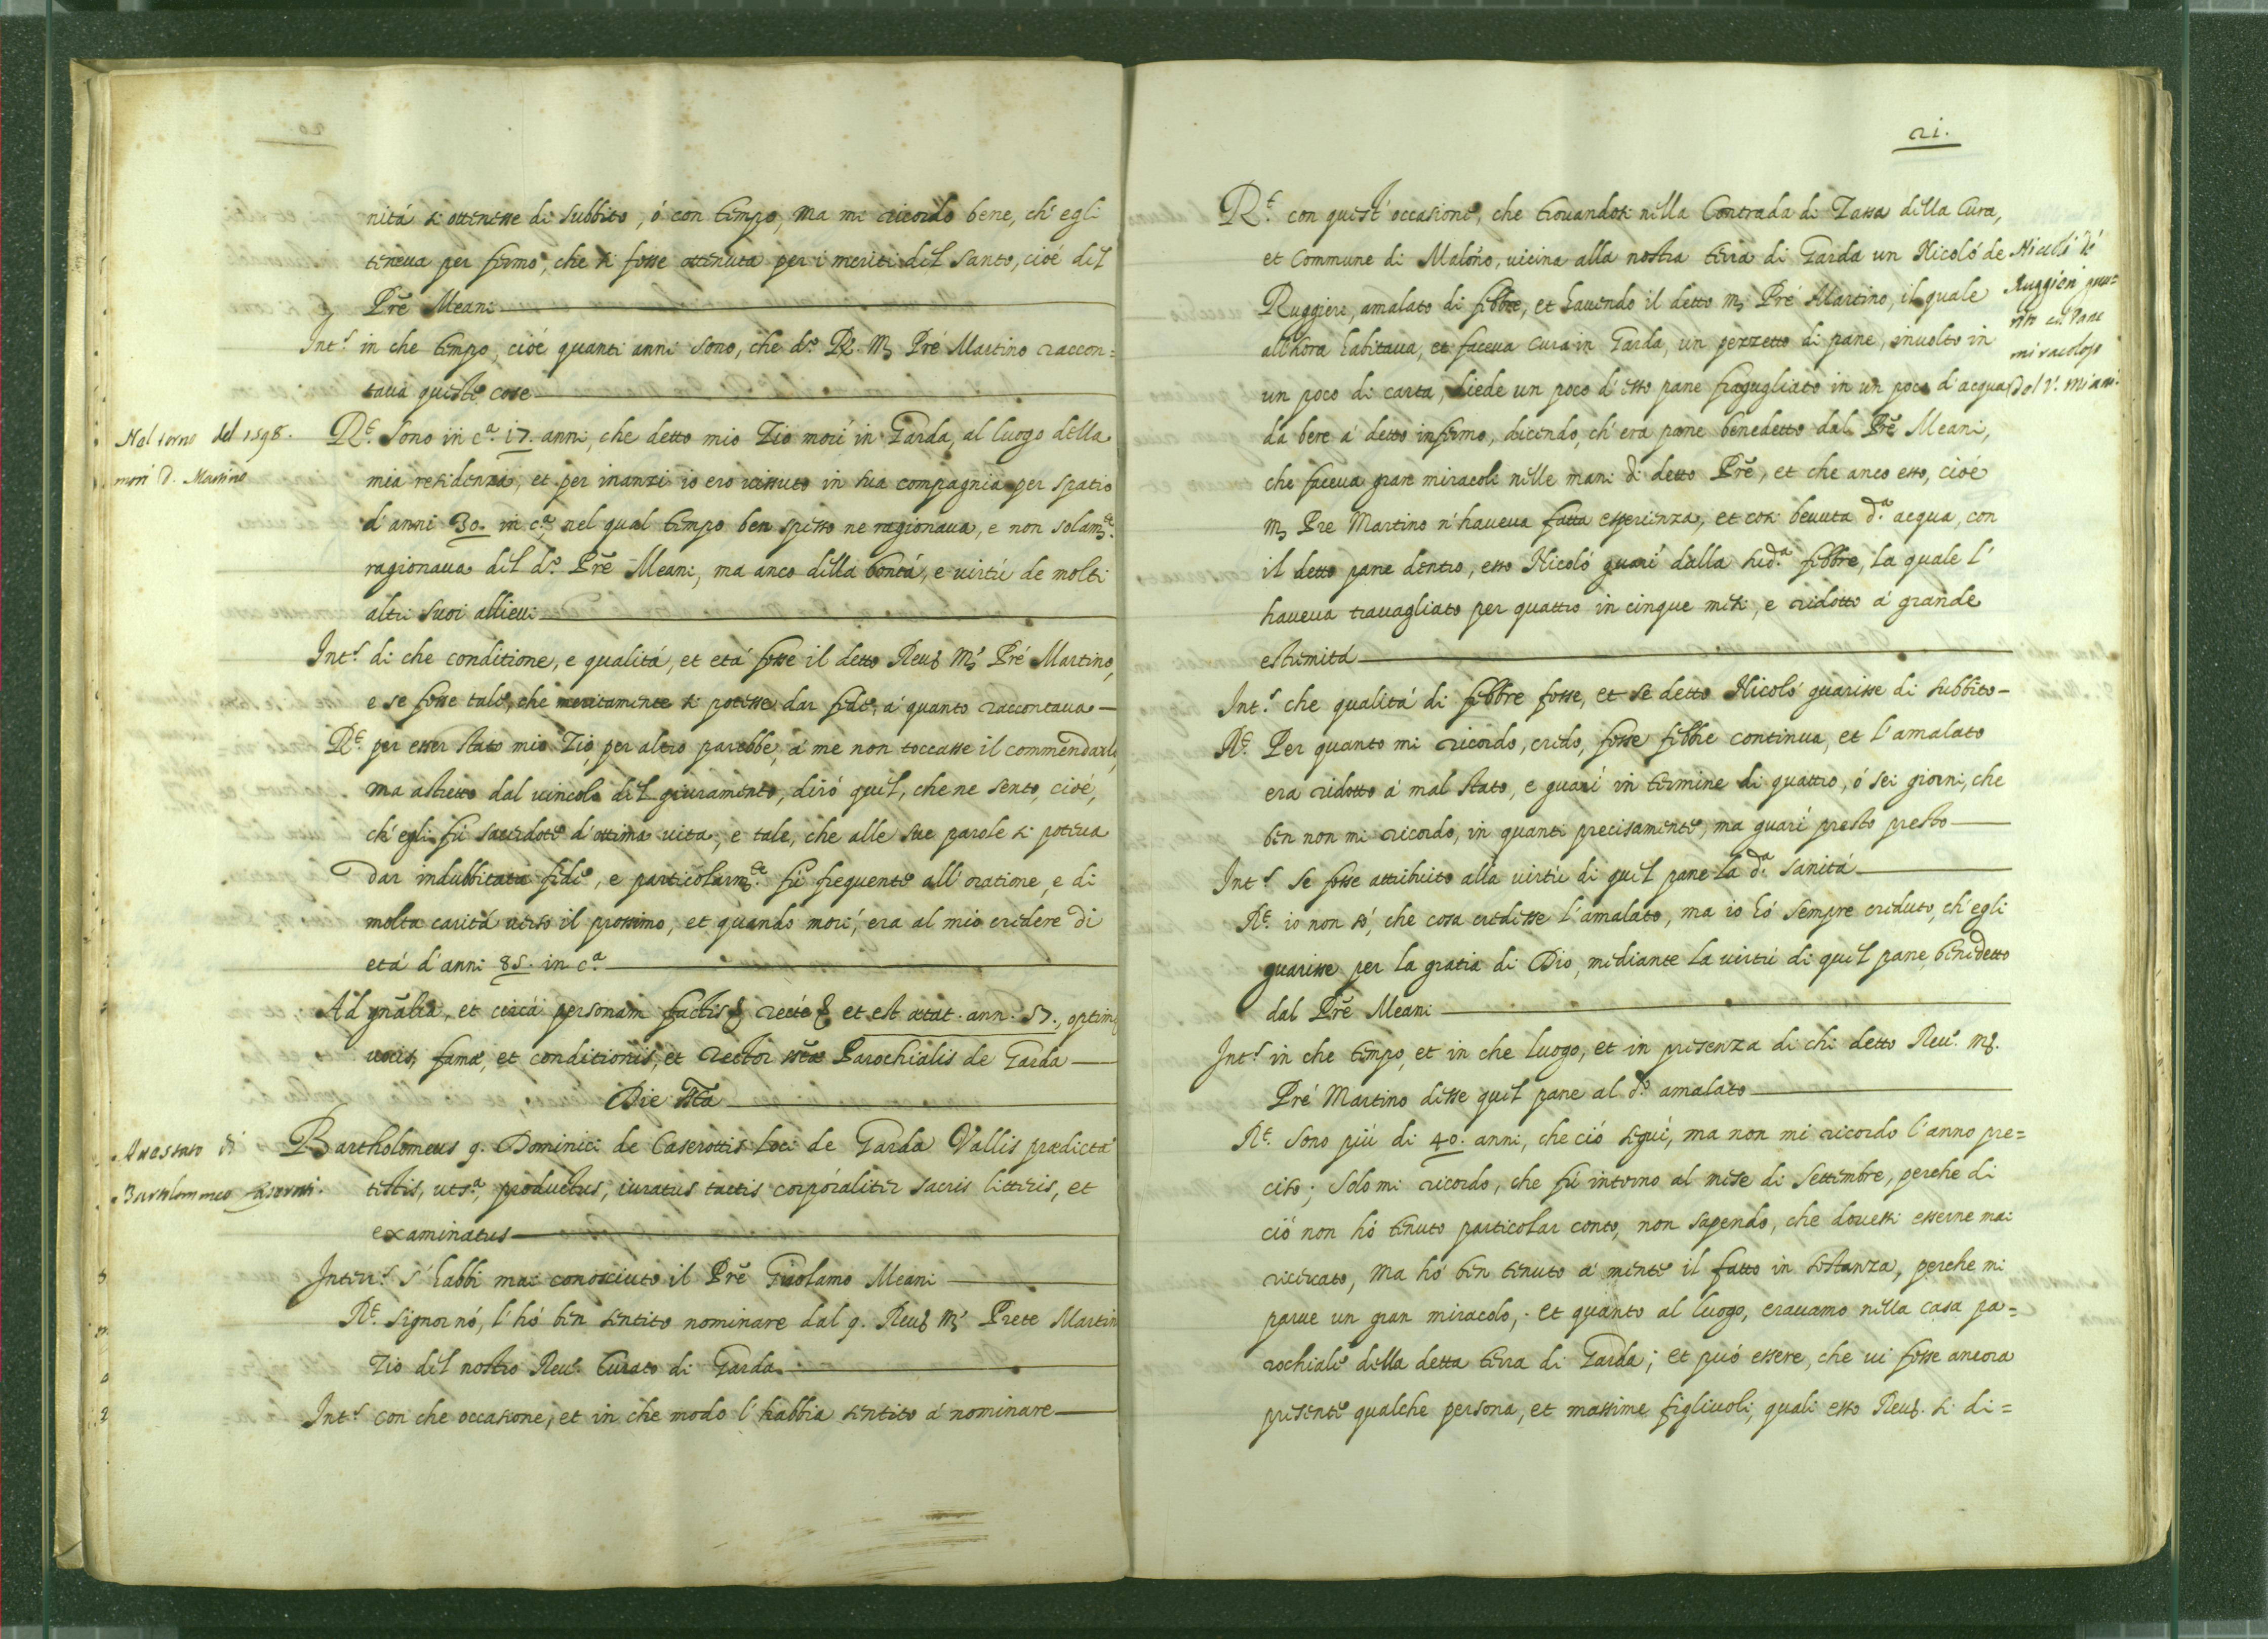 nitá si ottenesse di subbito, ó con tempo, ma mi ricordo bene, ch'egli
teneua per fermo, che si fosse ottenuta per i meriti del Santo, cioé del
Prē Meani
Int.s in che tempo, cioé quanti anni sono, che d.o R. Mʒ Pré Martino raccon=
taua queste cose
Nel torno del 1598.
morí D. Martino
R.e Sono in c.a 17. anni, che detto mio Zio morí in Garda, al luogo della
mia residenza, et per inanzi io ero uissuto in sua compagnia per spatio
d'anni 30. in c.a, nel qual tempo ben spesso ne ragionaua, e non solam.te
ragionaua del d.o Prē Meani, ma anco della bontá, e uirtú de molti
altri suoi allieui
Int.s di che conditione, e qualitá, et etá fosse il detto Reu.o M.s Pré Martino,
e se fosse tale, che meritamente si potesse dar fede, á quanto raccontaua
R.e per esser stato mio Zio, per altro parebbe, á me non toccasse il commendarlo,
ma astretto dal uincolo del giuramento, diró quel, che ne sento, cioé,
ch'egli fú sacerdote d'ottima uita, e tale, che alle sue parole si poteua
dar indubbitata fede, e particolarm.te fú frequente all'oratione, e di
molta caritá uerso il prossimo, et quando morí, era al mio credere di
etá d'anni 85. in c.a
Ad gn̄alia, et circa personam factis recte et est ætat. ann. 57., optim
uocis, famæ, et conditionis, et Rector ecc̄æ Parochialis de Garda
Die st̄a
Attestato di
Bartolommeo Caserotti.
Bartholomeus q. Dominici de Caserottis loci de Garda Vallis prædictæ
testis, uts.a, productus, iuratus tactis corporaliter sacris litteris, et
examinatus
Inter.s s'habbi mai conosciuto il Prē Girolamo Meani
R.e Signor nó, l'hó ben sentito nominare dal q. Reu.o M.s Prete Martin
Zio del nostro Reu.o Curato di Garda
Int.s con che occasione, et in che modo l'habbia sentito á nominare
21.
R.e con quest'occasione, che trouandosi nella Contrada di Zassa della Cura,
et Commune di Malóno, uicina alla nostra terra di Garda un Nicoló de
Ruggieri, amalato di febbre, et hauendo il detto mʒ Pré Martino, il quale
all'hora habitaua, et faceua cura in Garda, un pezzetto di pane, inuolto in
un poco di carta, diede un poco d'esso pane fragugliato in un poco d'acqua
da bere á detto infermo, dicendo, ch'era pane benedetto dal Prē Meani,
che faceua gran miracoli nelle mani di detto Prē, et che anco esso, cioé
mʒ Pre Martino n'haueua fatta esperienza, et cosi beuuta d.a acqua, con
il detto pane dentro, esso Nicoló guarí dalla sud.a febbre, la quale l'
haueua trauagliato per quattro in cinque mesi, e ridotto á grande
estremitá
Nicoló de
Ruggieri guar=
ito col Pane
miracoloso
del V. Miani.
Int.s che qualitá di febbre fosse, et se detto Nicoló guarisse di subbito
R.e Per quanto mi ricordo, credo, fosse febbre continua, et l'amalato
era ridotto á mal stato, e guarí in termine di quattro, ó sei giorni, che
ben non mi ricordo, in quanti precisamente, ma guarí presto presto
Int.s se fosse attribuito alla uirtú di quel pane la d.a sanitá
R.e io non só, che cosa credesse l'amalato, ma io hó sempre creduto, ch'egli
guarisse per la gratia di Dio, mediante la uirtú di quel pane benedetto
dal Prē Meani
Int.s in che tempo, et in che luogo, et in presenza di chi detto Reu.o M.
Pré Martino desse quel pane al d.o amalato
R.e Sono piú di 40. anni, che ció seguí, ma non mi ricordo l'anno pre=
ciso; Solo mi ricordo, che fú intorno al mese di Settembre, perche di
ció non hó tenuto particolar conto, non sapendo, che douessi esserne mai
ricercato, ma hó ben tenuto á mente il fatto in sostanza, perche mi
parue un gran miracolo, et quanto al luogo, erauamo nella casa pa=
rochiale della detta terra di Garda; et puó essere, che ui fosse ancora
presente qualche persona, et massime figliuoli, quali esso Reu.o si di=